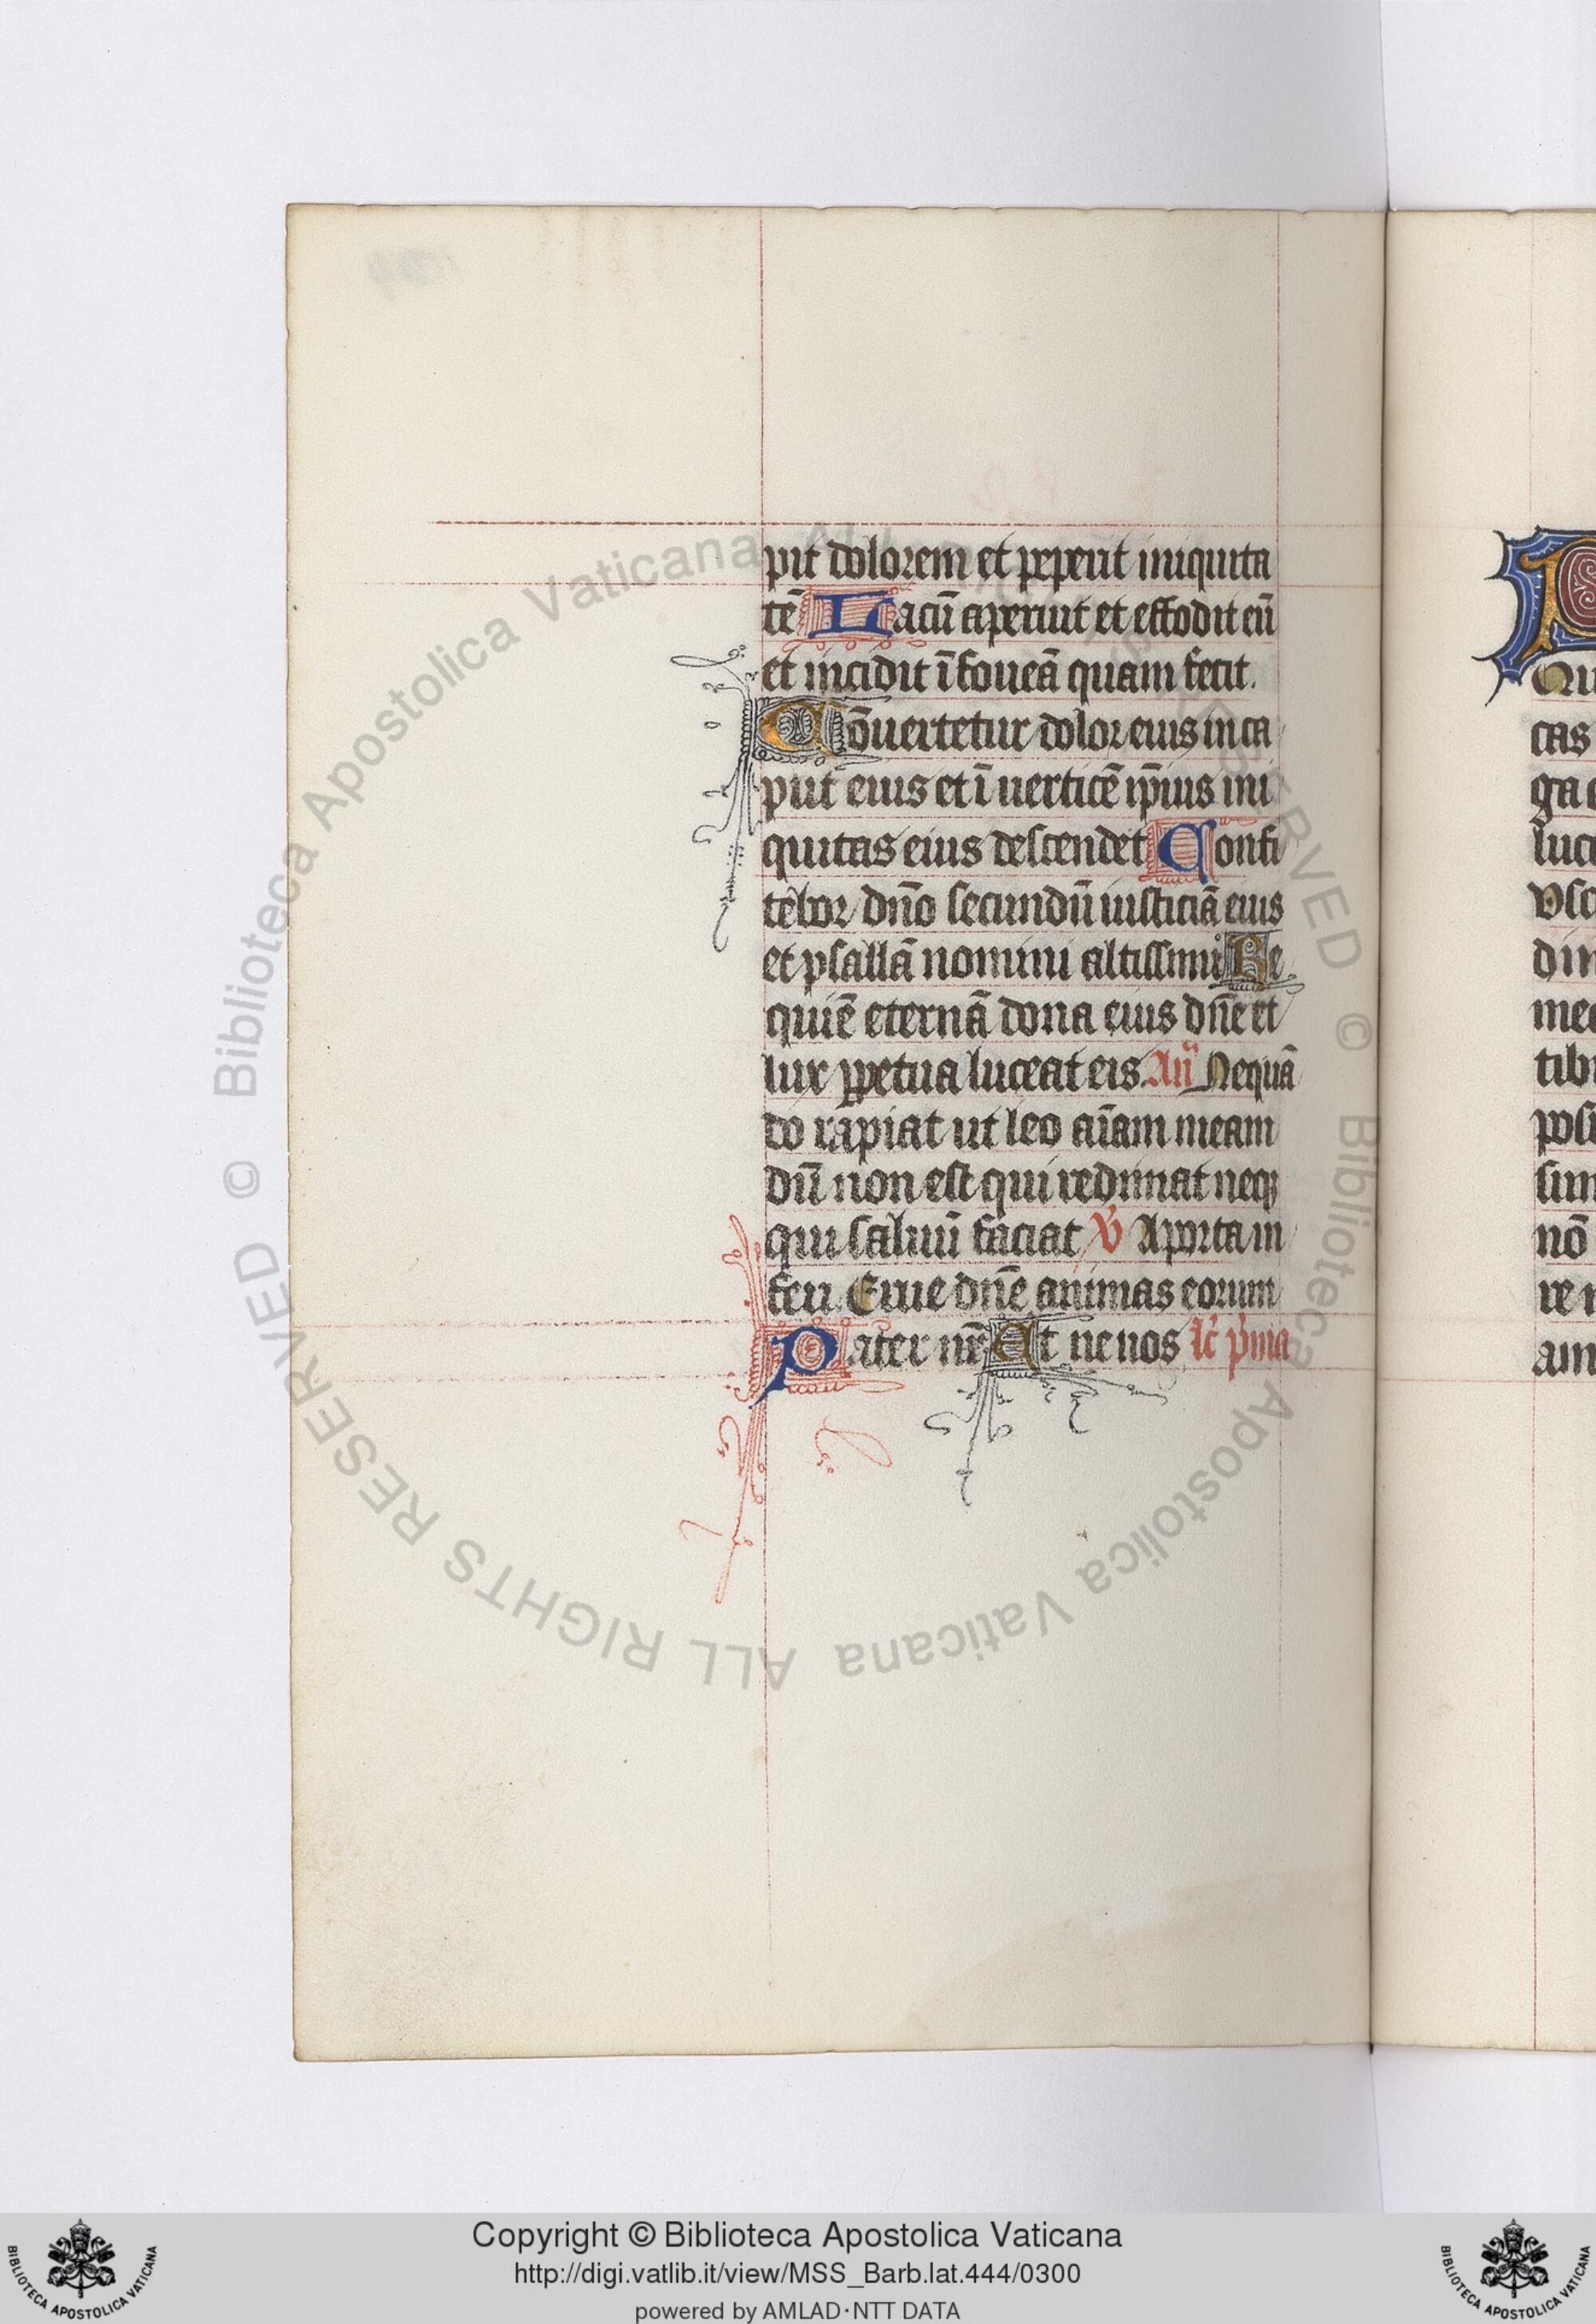 pit dolorem et peperit iniquita
tē Lacū aperuit et effodit eū
et incidit ī foueā quam fecit.
Cōuertetur dolor eius in ca
put eius et ī uerticē ip̄ius ini
quitas eius descendet Confi
tebor dn̄o secundū iusticiā eius
et psallā nomini altissimi Re
quiē eternā dona eius dn̄e et
lux ꝑpetua luceat eis. An̄ Nequā
do rapiat ut leo aīam meam
dū non est qui redimat neqꝫ
qui saluū faciat ℣ A porta in
feri. Erue dn̄e animas eorum
Pater nr̄ Et ne nos lc̄ p̄ma
Qui
cas
ga
luci
vsq
din
me
tibi
posi
sun
nō
re
am
© Biblioteca Apostolica Vaticana ALL RIGHTS RESERVED © Biblioteca Apostolica Vaticana ALL RIGHTS RESERVED
Copyright © Biblioteca Apostolica Vaticana
http://digi.vatlib.it/view/MSS_Barb.lat.444/0300
powered by AMLAD·NTT DATA
BIBLIOTECA APOSTOLICA VATICANA
BIBLIOTECA APOSTOLICA VATICANA